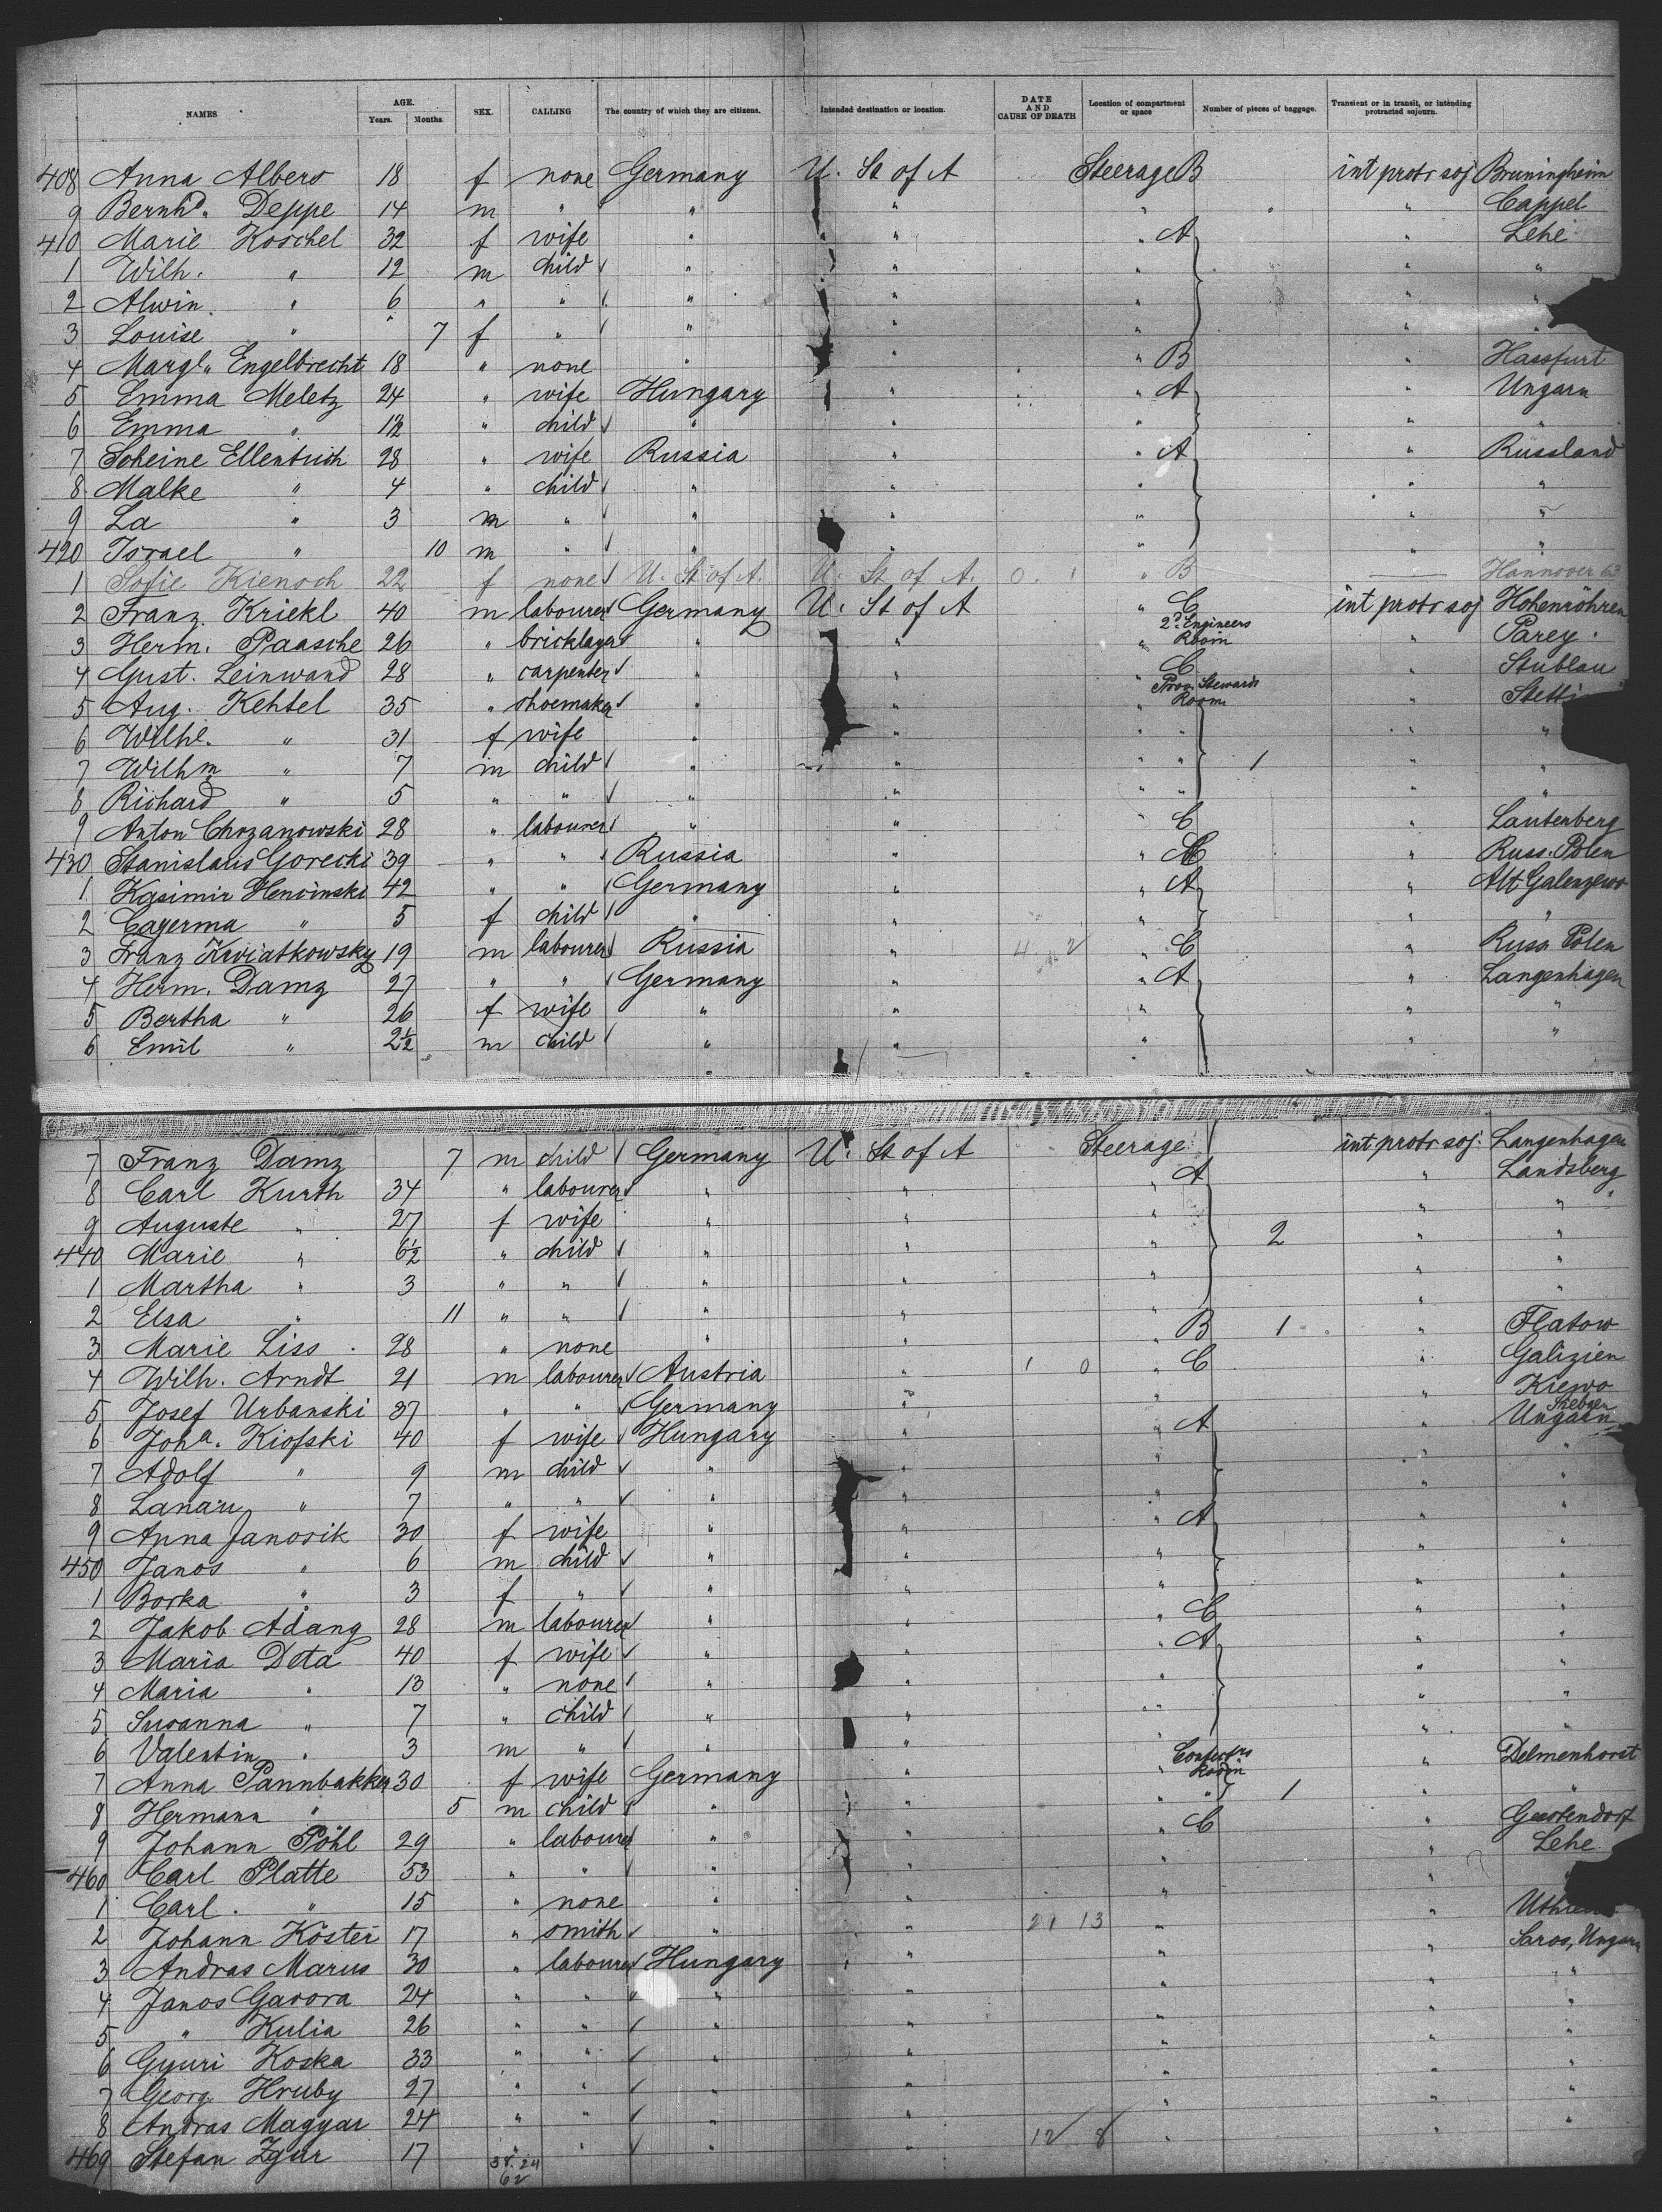 NAMES AGE. Years. Months. SEX. CALLING The country of which they are citizens. Intended destination or location. DATE AND CAUSE OF DEATH Location of compartment or space Number of pieces of baggage. Transient or in transit, or intending protracted sojourn.
408 Anna Albers 18 f none Germany U. St of A Steerage B int protr soj Bruningheim
9 Bernhd. Deppe 14 m " " " " " Cappel
410 Marie Koschel 32 f wife " " " A " Lehe
1 Wilh. " 12 m child " " " " "
2 Alwin " 6 " " " " " "
3 Louise " 7 f " " " " "
4 Margt. Engelbrecht 18 " none " " " B " Hassfurt
5 Emma Meletz 24 " wife Hungary " " A " Ungarn
6 Emma " 1½ " child " " " " "
7 Scheine Ellenbuch 28 " wife Russia " " A " Russland
8 Malke " 4 " child " " " " "
9 La " 3 m " " " " " "
420 Israel " 10 m " " " " " "
1 Sofie Kienoch 22 f none U. St of A. U. St of A. 0. 1 " B — Hannover
2 Franz Kriekl 40 m labourer Germany U. St of A " C int protr soj Hohenröhren
3 Herm. Paasche 26 " bricklayer " " " 2d Engineers Room " Parey
4 Gust. Leinwand 28 " carpenter " " " C " Stublau
5 Aug. Kehtel 35 " shoemaker " " " Prov. Stewards Room " Stettin
6 Wilhe. " 31 f wife " " " " " "
7 Wilhm " 7 m child " " " " 1 " "
8 Richard " 5 " " " " " " " "
9 Anton Chozanowski 28 " labourer " " C " Lautenberg
430 Stanislaus Gorecki 39 " " Russia " " C " Russ. Polen
1 Kasimir Hencinski 42 " " Germany " " A " Alt
2 Cagerma " 5 f child " " " " "
3 Franz Kwiatkowsky 19 m labourer Russia " 4 2 " C " Russ Polen
4 Herm. Damz 27 " " Germany " " A " Langenhagen
5 Bertha " 26 f wife " " " " "
6 Emil " 2½ m child " " " " "
7 Franz Damz 7 m child Germany U. St of A Steerage int protr soj. Langenhagen
8 Carl Kurth 34 " labourer " " " A " Landsberg
9 Auguste " 27 f wife " " " " "
440 Marie " 6½ " child " " " 2 " "
1 Martha " 3 " " " " " " "
2 Elsa " 11 " " " " " " "
3 Marie Liss 28 " none " " " B 1 " Flatow
4 Wilh. Arndt 21 m labourer Austria " 1 0 " C " Galizien
5 Josef Urbanski 37 " " Germany " " " Kiewo
6 Joha. Kiofski 40 f wife Hungary " " A " Ungarn
7 Adolf " 9 m child " " " " "
8 " 7 " " " " " " "
9 Anna Janosik 30 f wife " " " A " "
450 Janos " 6 m child " " " " "
1 Borka " 3 f " " " " " "
2 Jakob Adang 28 m labourer " " " C " "
3 Maria Deta 40 f wife " " " A " "
4 Maria " 13 " none " " " " "
5 Susanna " 7 " child " " " " "
6 Valentin " 3 m " " " " " "
7 Anna Pannbakker 30 f wife Germany " " Room " Delmenhorst
8 Hermann " 5 m child " " " " 1 " "
9 Johann Pohl 29 " labourer " " " C " Geestendorf
460 Carl Platte 53 " " " " " " Lehe
1 Carl " 15 " none " " " " "
2 Johann Köster 17 " smith " " 21 13 " "
3 Andras Marus 30 " labourer Hungary " " " Saros, Ungarn
4 Janos Gavora 24 " " " " " " "
5 " Kulia 26 " " " " " " "
6 Gyuri Koska 33 " " " " " " "
7 Georg Hruby 27 " " " " " " "
8 Andras Magyar 24 " " " " " " "
469 Stefan Zgur 17 " " " " 12 8 " " "
38. 24
62